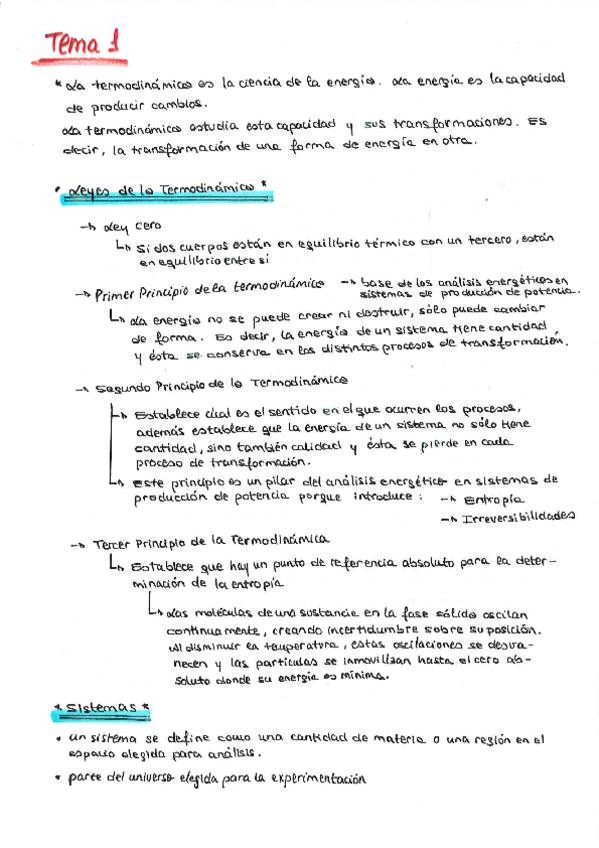 Tema 1
* La termodinámica es la ciencia de la energía. La energía es la capacidad
de producir cambios.
La termodinámica estudia esta capacidad y sus transformaciones. Es
decir, la transformación de una forma de energía en otra.
• Leyes de la Termodinámica *
→ Ley cero
↳ Si dos cuerpos están en equilibrio térmico con un tercero, están
en equilibrio entre sí
→ Primer Principio de la termodinámica → base de los análisis energéticos en
sistemas de producción de potencia.
↳ La energía no se puede crear ni destruir, sólo puede cambiar
de forma. Es decir, la energía de un sistema tiene cantidad
y ésta se conserva en los distintos procesos de transformación.
→ Segundo Principio de la Termodinámica
↳ Establece cual es el sentido en el que ocurren los procesos,
además establece que la energía de un sistema no sólo tiene
cantidad, sino también calidad y ésta se pierde en cada
proceso de transformación.
↳ Este principio es un pilar del análisis energético en sistemas de
producción de potencia porque introduce: → Entropía
→ Irreversibilidades
→ Tercer Principio de la Termodinámica
↳ Establece que hay un punto de referencia absoluto para la deter-
minación de la entropía
↳ Las moléculas de una sustancia en la fase sólido oscilan
continuamente, creando incertidumbre sobre su posición.
Al disminuir la temperatura, estas oscilaciones se desva-
necen y las partículas se inmovilizan hasta el cero ab-
soluto donde su energía es mínima.
* Sistemas *
• un sistema se define como una cantidad de materia o una región en el
espacio elegida para análisis.
• parte del universo elegida para la experimentación